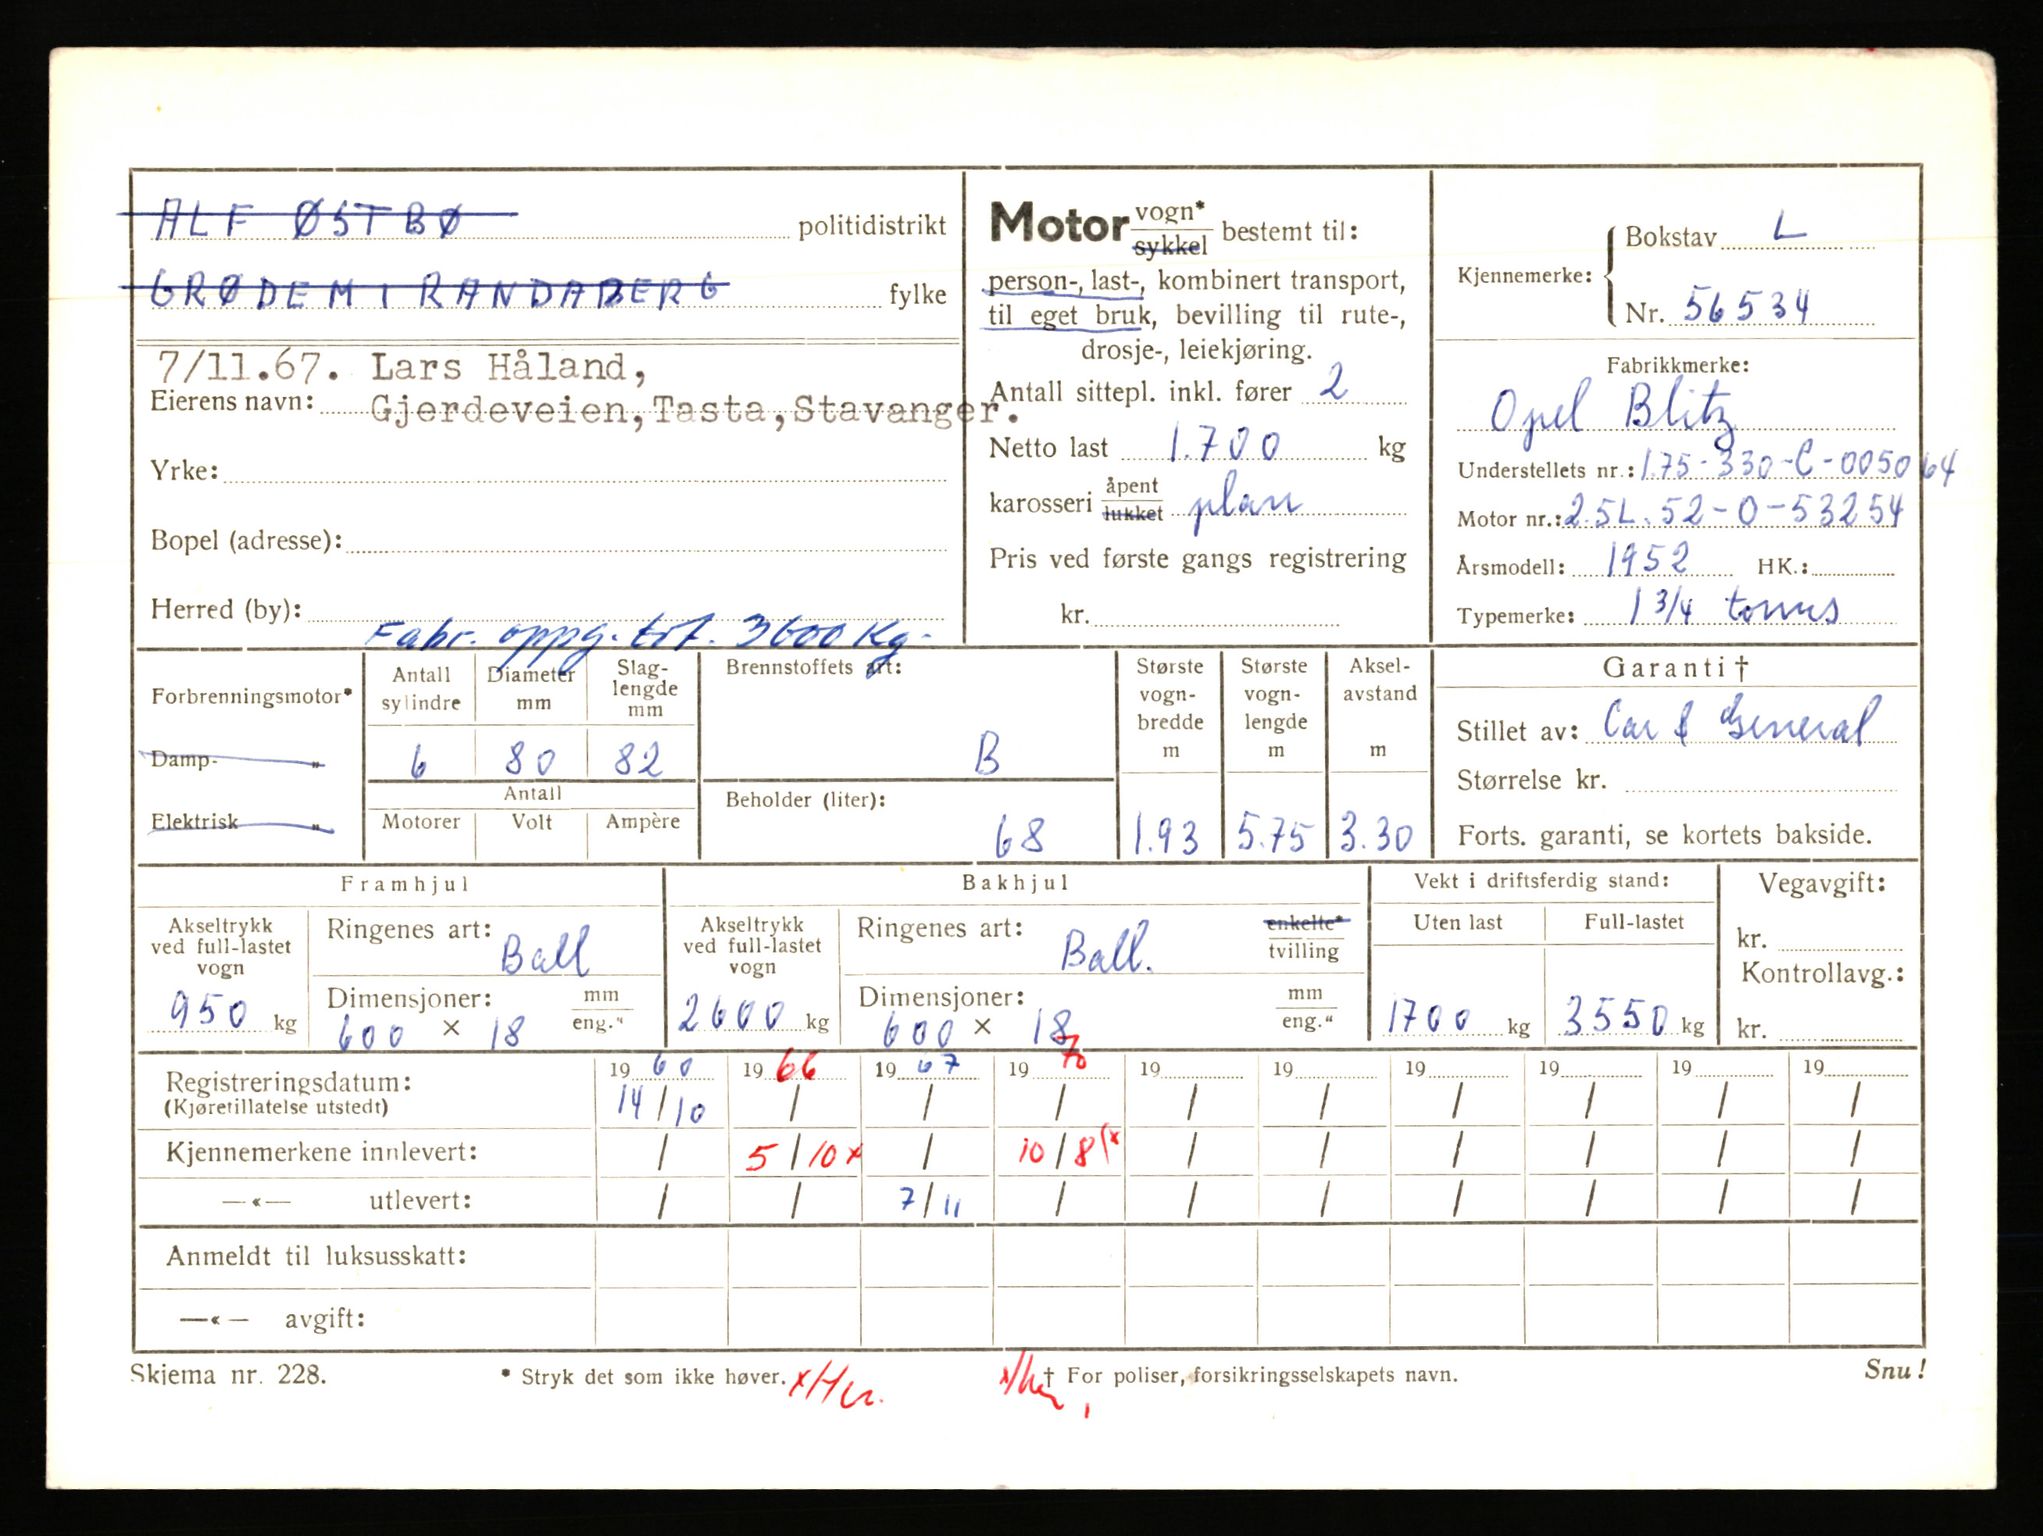 ALF ØSTBØ politidistrikt
GRØDEM I RANDABERG fylke
7/11.67. Lars Håland,
Eierens navn: Gjerdeveien, Tasta, Stavanger.
Yrke:
Bopel (adresse):
Herred (by):
Fabr. oppg. tot. 3600 Kg.
Motor vogn* sykkel bestemt til:
person-, last-, kombinert transport,
til eget bruk, bevilling til rute-,
drosje-, leiekjøring.
Antall sittepl. inkl. fører 2
Netto last 1.700 kg
karosseri åpent lukket plan
Pris ved første gangs registrering
kr.
Kjennemerke: Bokstav L
Nr. 56534
Fabrikkmerke:
Opel Blitz
Understellets nr.: 1.75-330-C-005064
Motor nr.: 2.5L.52-0-53254
Årsmodell: 1952 HK.:
Typemerke: 1 3/4 tonns
Forbrenningsmotor*
Damp- „
Elektrisk „
Antall sylindre 6
Diameter mm 80
Slag-lengde mm 82
Antall
Motorer Volt Ampère
Brennstoffets art: B
Beholder (liter): 68
Største vogn-bredde m 1.93
Største vogn-lengde m 5.75
Aksel-avstand m 3.30
Garanti †
Stillet av: Car & General
Størrelse kr.
Forts. garanti, se kortets bakside.
Framhjul
Akseltrykk ved full-lastet vogn 950 kg
Ringenes art: Ball
Dimensjoner: mm eng.“
600 × 18
Bakhjul
Akseltrykk ved full-lastet vogn 2600 kg
Ringenes art: Ball. enkelte* tvilling
Dimensjoner: mm eng.“
600 × 18
Vekt i driftsferdig stand:
Uten last 1700 kg
Full-lastet 3550 kg
Vegavgift:
kr.
Kontrollavg.:
kr.
Registreringsdatum: 19 60 19 66 19 67 19 70 19 19 19 19 19 19
(Kjøretillatelse utstedt) 14/10 / / / / / / / / /
Kjennemerkene innlevert: / 5/10 x / 10/8 (x / / / / / /
—«— utlevert: / / 7/11 / / / / / / /
Anmeldt til luksusskatt:
—«— avgift:
Skjema nr. 228. * Stryk det som ikke høver. † For poliser, forsikringsselskapets navn. Snu!